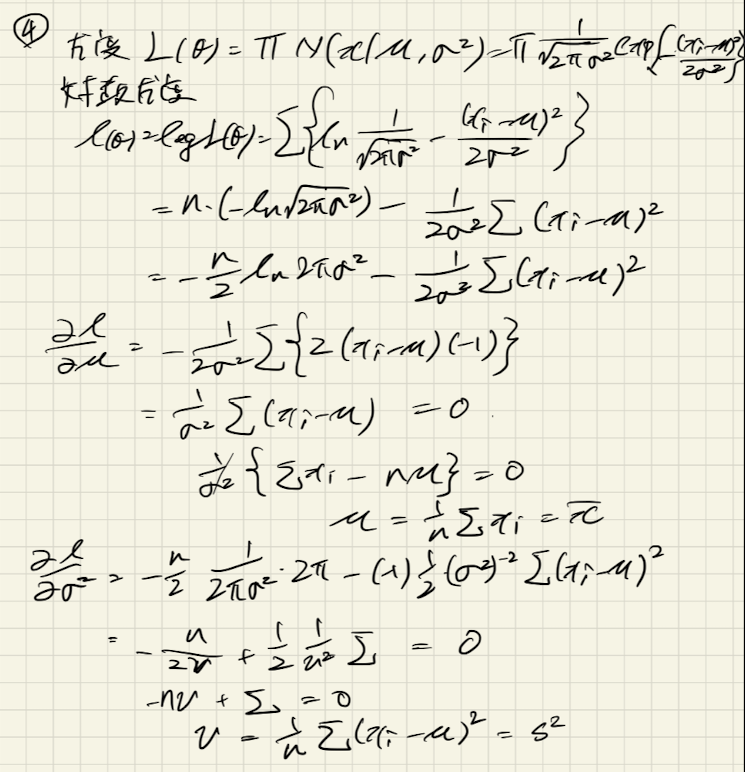 ④ 尤度 L(θ) = Π N(x|μ, σ²) = Π 1/√(2πσ²) exp{-(xᵢ-μ)²/2σ²}
対数尤度
l(θ) = log L(θ) = Σ{ln 1/√(2πσ²) - (xᵢ-μ)²/2σ²}
= n·(-ln√(2πσ²)) - 1/2σ² Σ(xᵢ-μ)²
= -n/2 ln 2πσ² - 1/2σ² Σ(xᵢ-μ)²
∂l/∂μ = -1/2σ² Σ{2(xᵢ-μ)(-1)}
= 1/σ² Σ(xᵢ-μ) = 0
1/σ² {Σxᵢ - nμ} = 0
μ = 1/n Σxᵢ = x̄
∂l/∂σ² = -n/2 1/2πσ² · 2π - (-1) 1/2 (σ²)⁻² Σ(xᵢ-μ)²
= -n/2v + 1/2 1/v² Σ = 0
-nv + Σ = 0
v = 1/n Σ(xᵢ-μ)² = s²